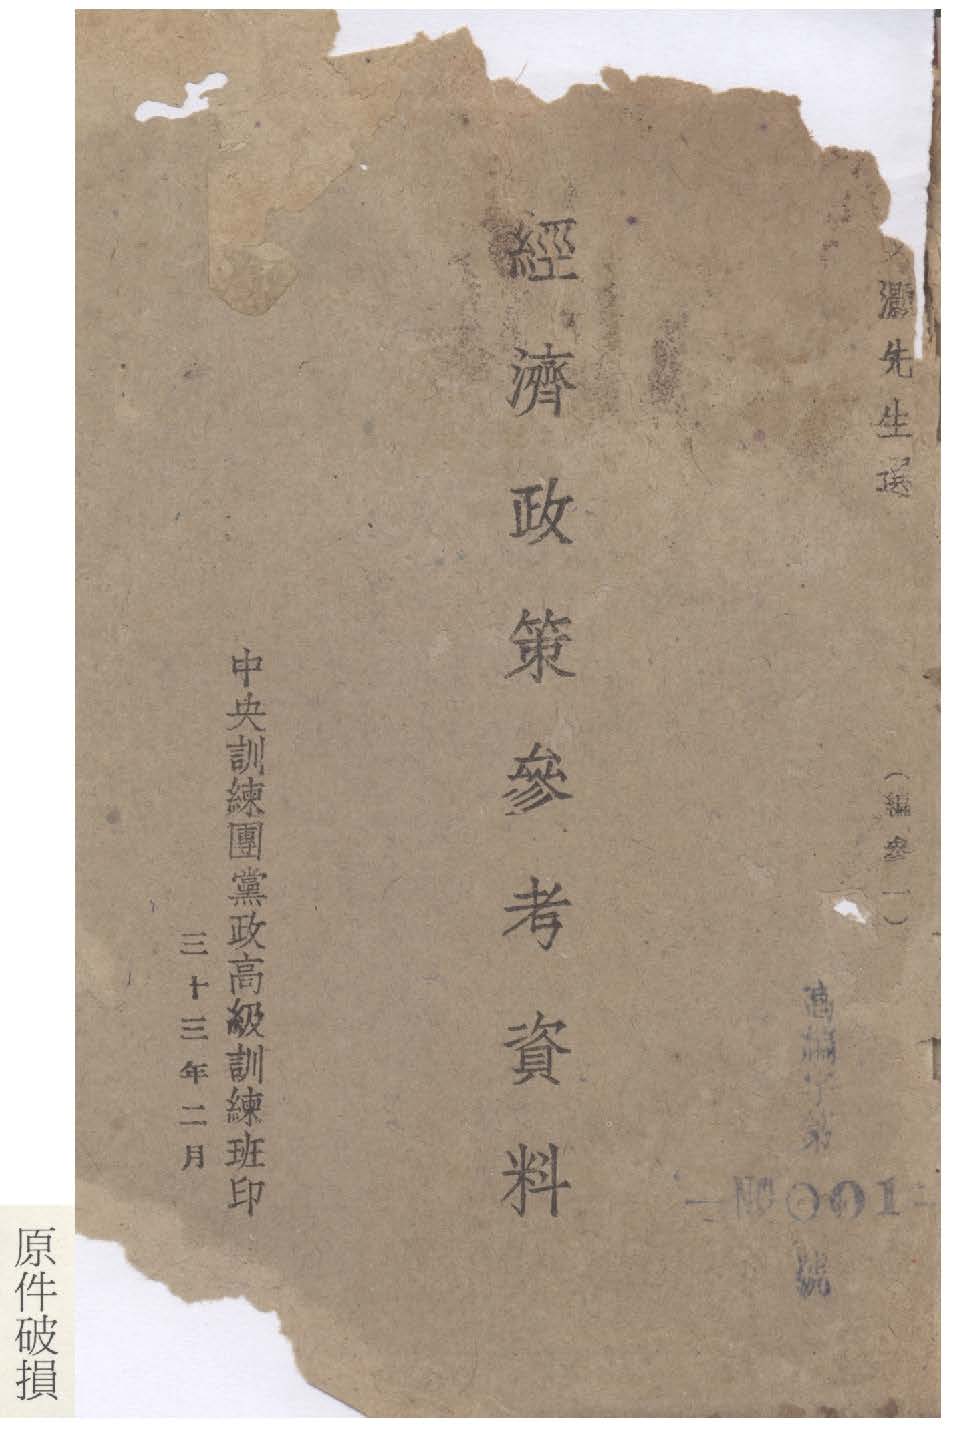 灝先生選
（編參一）
高編字第
NO 001
號
經濟政策參考資料
中央訓練團黨政高級訓練班印
三十三年二月
原件破損